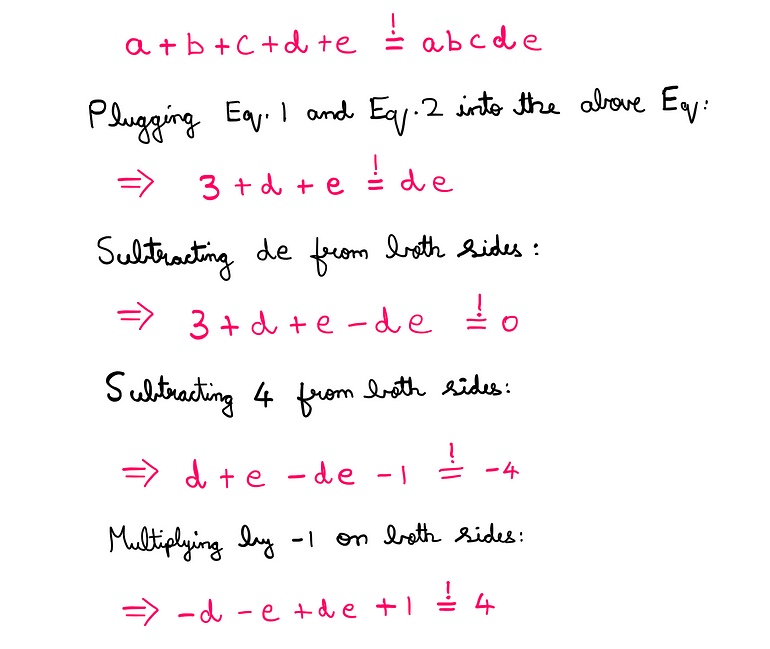 a + b + c + d + e != abcde
Plugging Eq. 1 and Eq. 2 into the above Eq:
⇒ 3 + d + e != de
Subtracting de from both sides:
⇒ 3 + d + e - de != 0
Subtracting 4 from both sides:
⇒ d + e - de - 1 != -4
Multiplying by -1 on both sides:
⇒ -d - e + de + 1 != 4